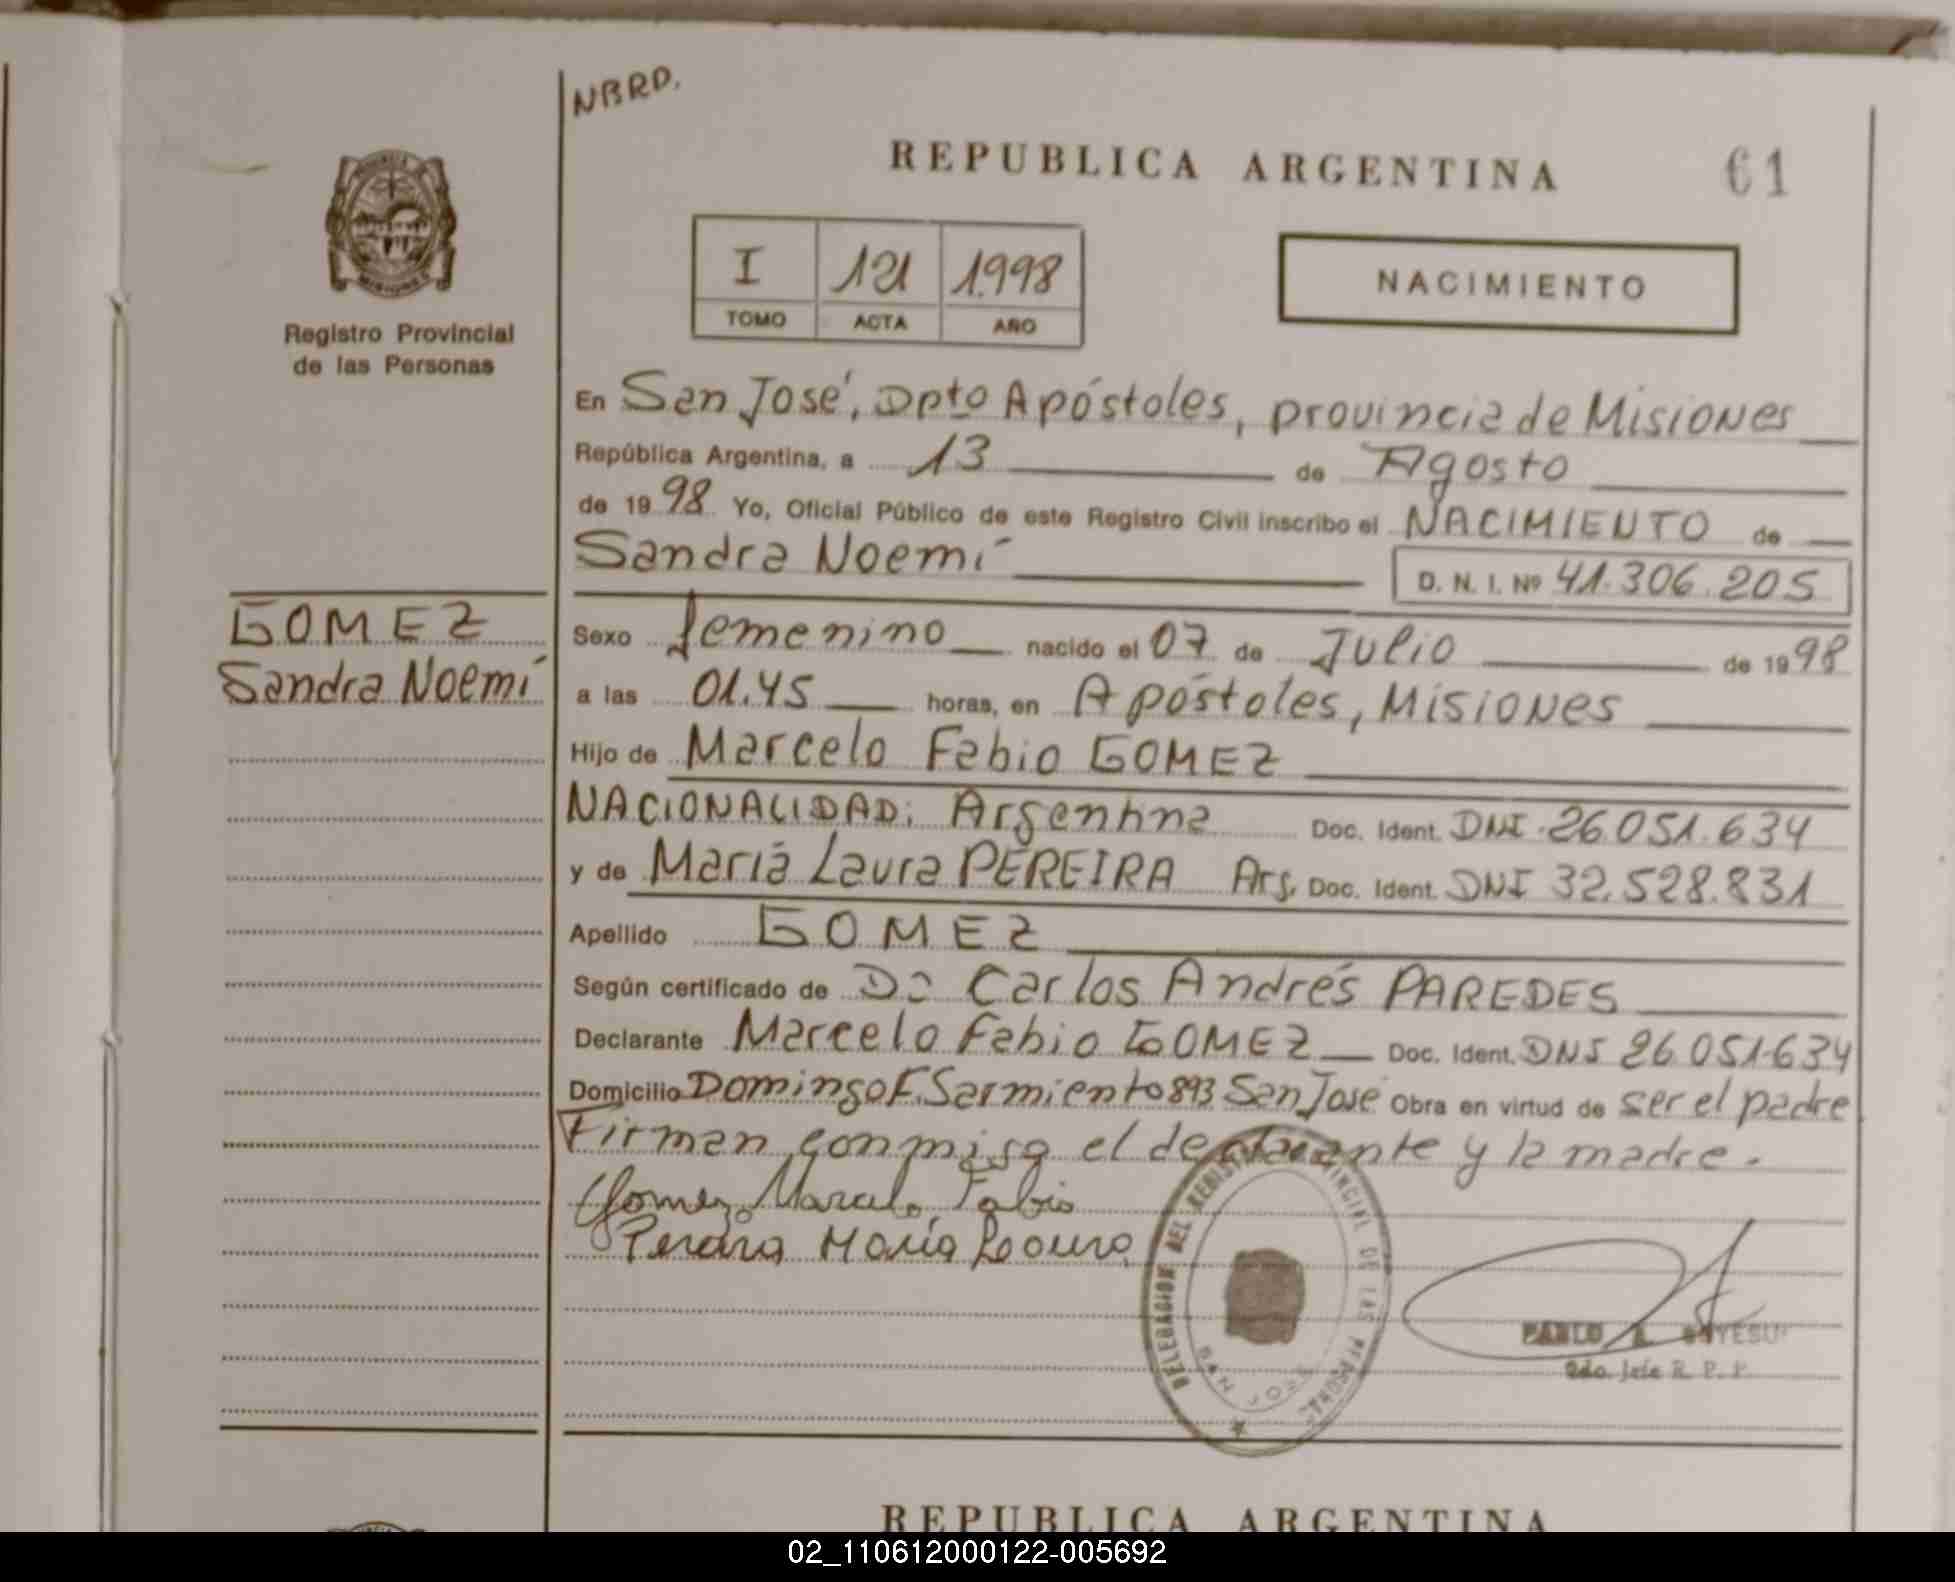 NBRD.
REPUBLICA ARGENTINA 61
I 121 1.998
TOMO ACTA AÑO
NACIMIENTO
Registro Provincial
de las Personas
En San José, Dpto Apóstoles, provincia de Misiones
República Argentina, a 13 de Agosto
de 1998 Yo, Oficial Público de este Registro Civil inscribo el NACIMIENTO de
Sandra Noemí
D. N. I. Nº 41.306.205
GOMEZ
Sandra Noemí
Sexo femenino nacido el 07 de Julio de 1998
a las 01.45 horas, en Apóstoles, Misiones
Hijo de Marcelo Fabio GOMEZ
NACIONALIDAD: Argentina Doc. Ident. DNI 26.051.634
y de María Laura PEREIRA Arg. Doc. Ident. DNI 32.528.831
Apellido GOMEZ
Según certificado de Carlos Andrés PAREDES
Declarante Marcelo Fabio GOMEZ Doc. Ident. DNI 26.051.634
Domicilio Domingo F. Sarmiento 893 San José Obra en virtud de ser el padre
Firman conmigo el declarante y la madre.
Gomez Marcelo Fabio
Pereira María Laura
DELEGACION DEL REGISTRO PROVINCIAL DE LAS PERSONAS
SAN JOSE
PABLO A.
2do. Jefe R. P. P.
REPUBLICA ARGENTINA
02_110612000122-005692